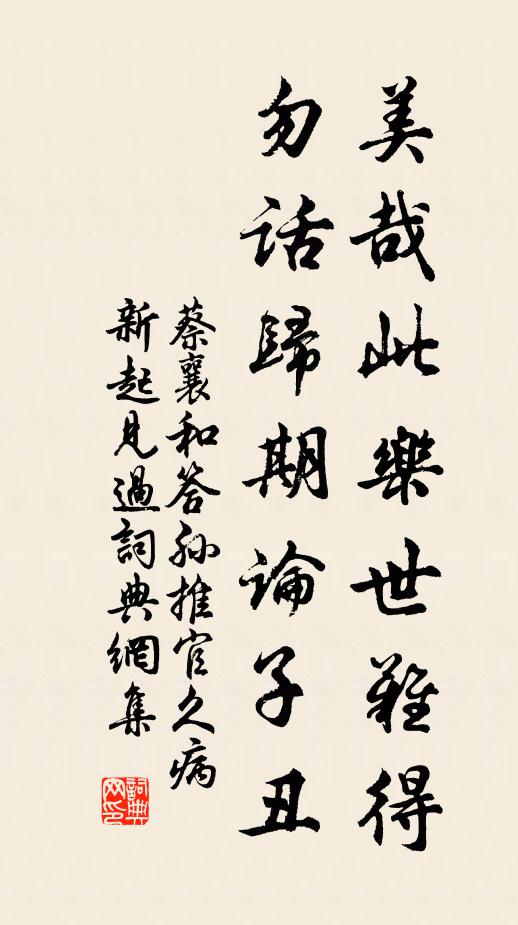 美哉此樂世難得
勿话歸期論子丑
蔡襄和答孫推官久病
新起見過詞典網集
詞典
网印